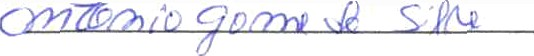 Antonio gome de Silve